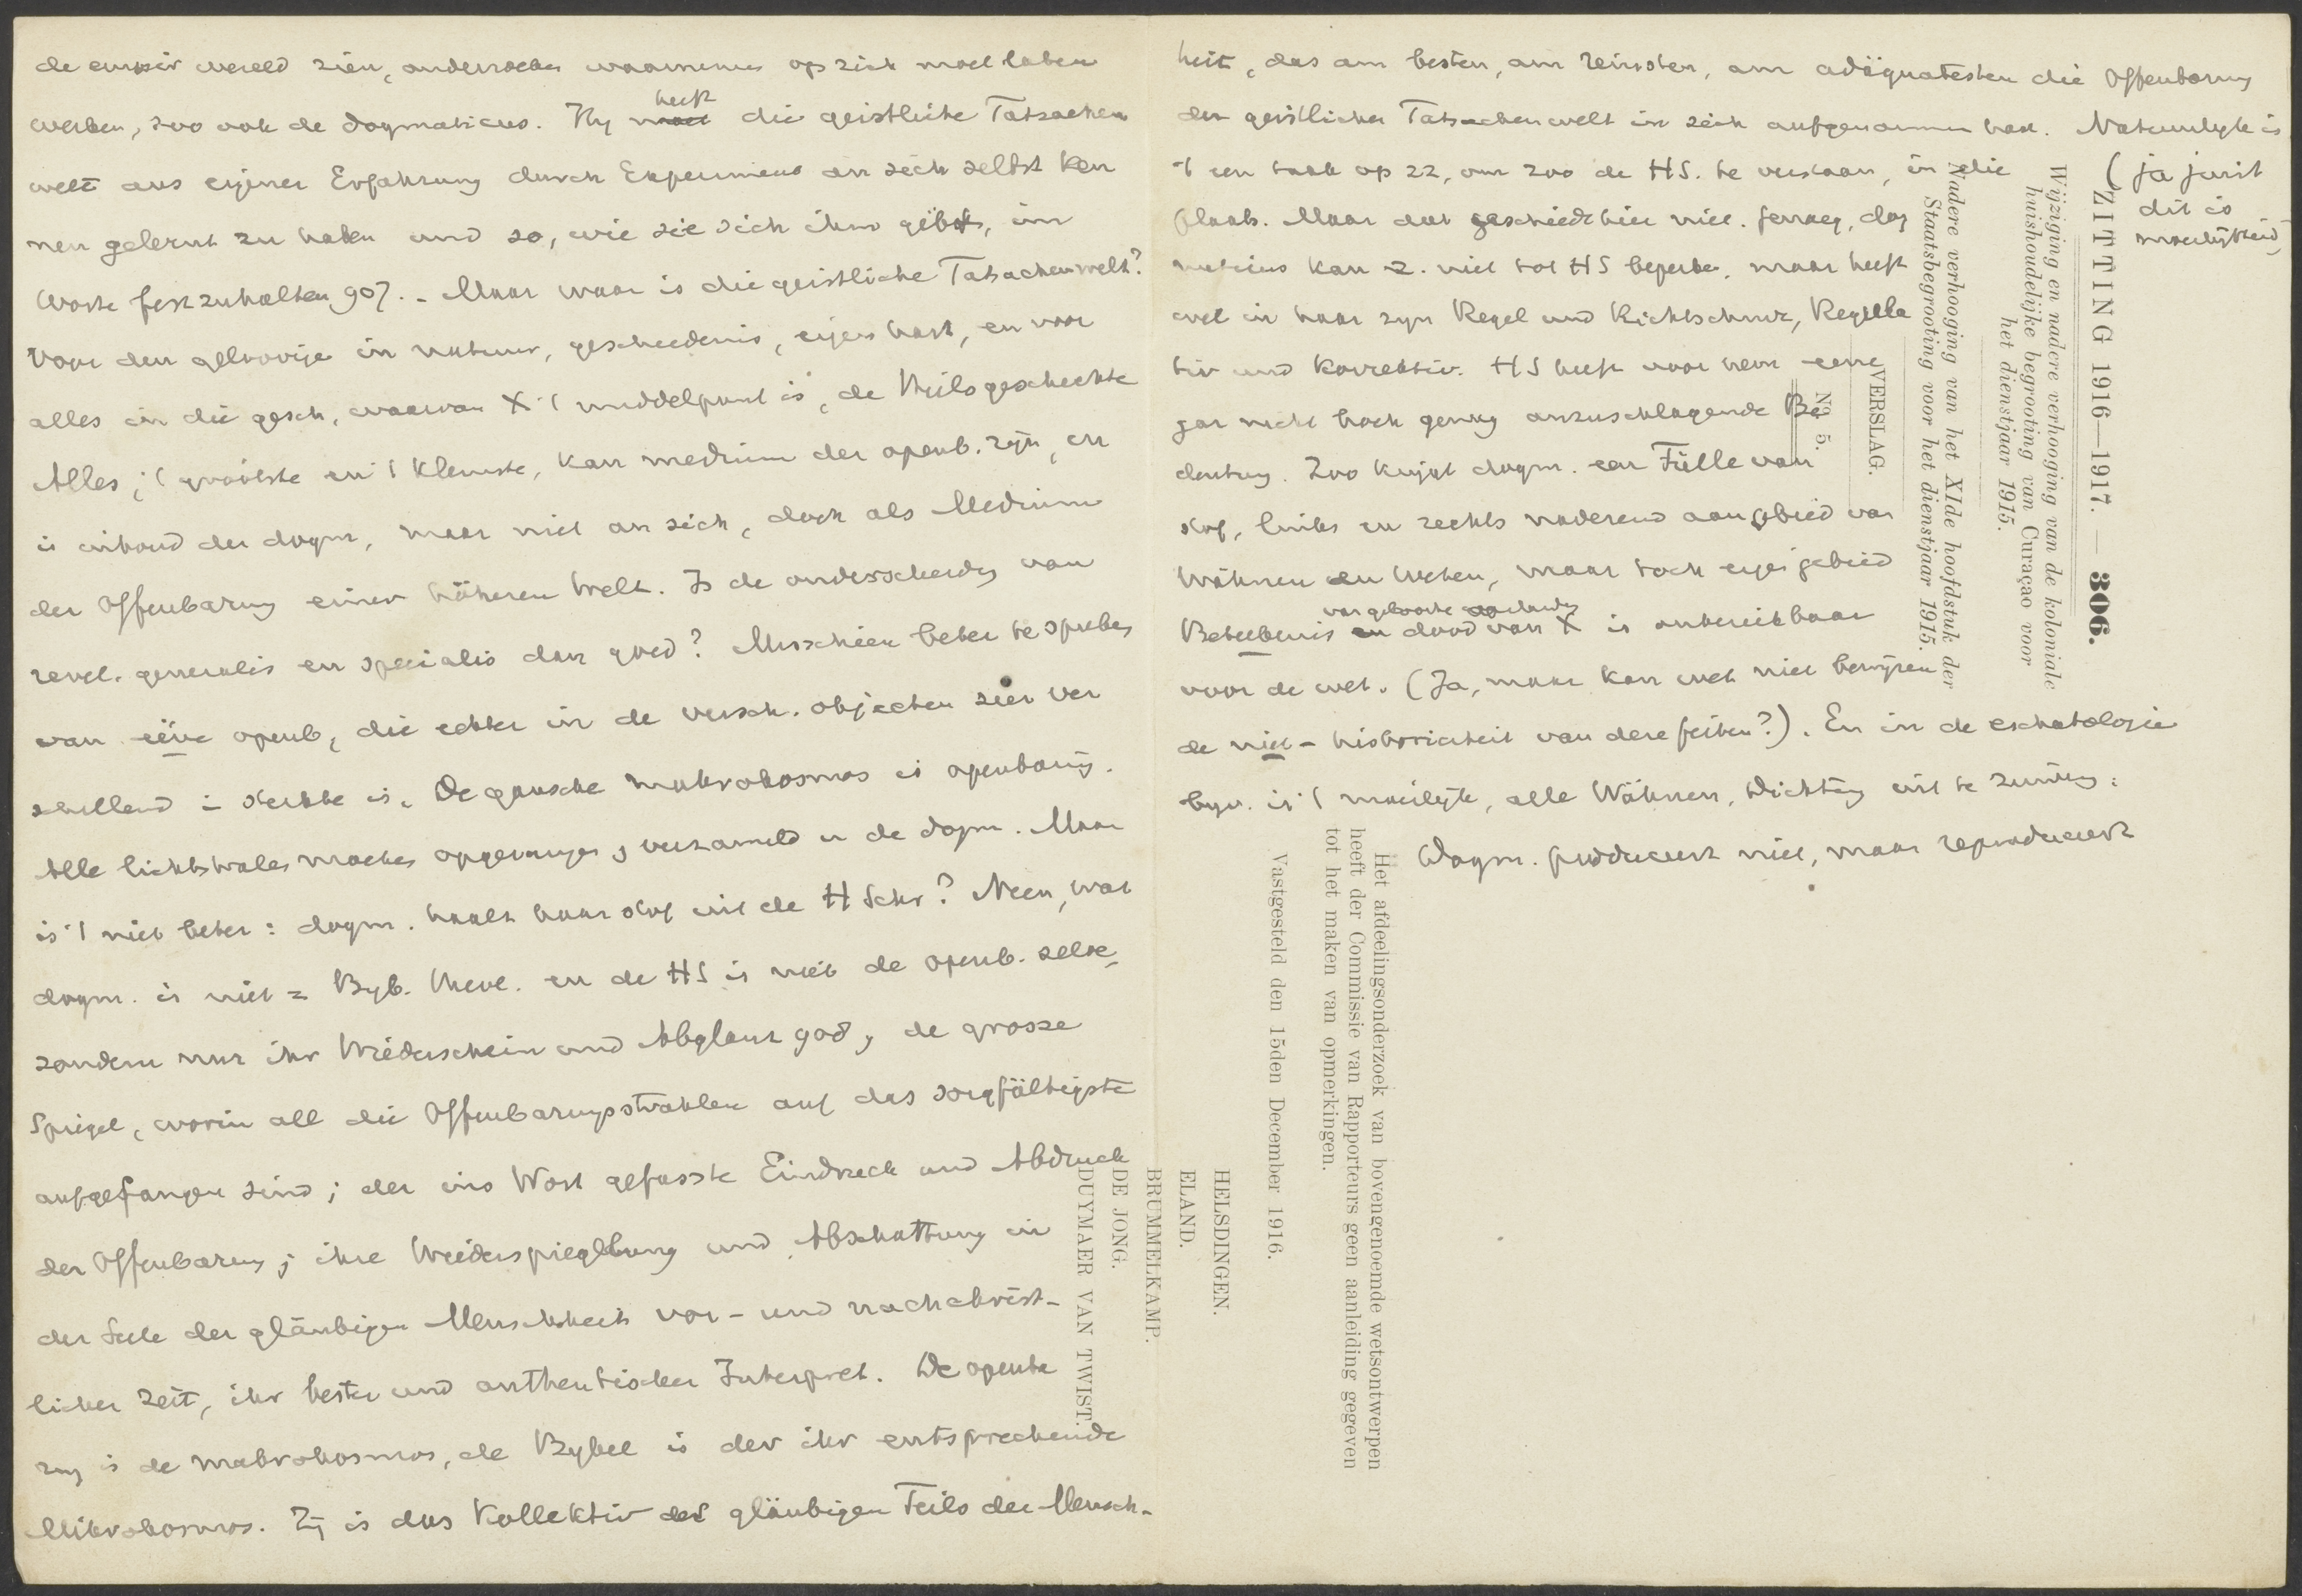 de empir wereld zien, onderzoeken waarnemen op zich moet laten
werken, zoo ook de dogmaticus. Hy heeft die geistliche Tatsachen
welt aus eigener Erfahrung durch Experiment an sich selbst ken
nen gelernt zu haben und so, wie sie sich ihm gibt, im
Worte festzuhalten 907. - Maar waar is die geistliche Tatsachenwelt?
Voor den geloovige in natuur, geschiedenis, eigen hart, en voor
alles in die gesch, waarvan X 't middelpunt is, de Heilsgeschichte
Alles, 't grootste en 't kleinste, kan medium der openb. zijn, en
is inhoud der dogm, maar niet an sich, doch als Medium
der Offenbarung einer höheren Welt. Is de onderscheiding van
revel. generalis en specialis dan goed? Misschien beter te spreken
van ééne openb, die echter in de versch. objecten zeer ver
schillend in sterkte is. De gansche makrokosmos is openbaring.
Alle lichtstralen moeten opgevangen, verzameld in de dogm. Maar
is 't niet beter: dogm. haalt haar stof uit de H Schr? Neen, want
dogm. is niet = Byb. theol. en de HS is niet de openb. zelve,
sondern nur ihr Wiederschein und Abglanz 908, de grosse
Spiegel, worin all die Offenbarungsstrahlen auf das sorgfältigste
aufgefangen sind; der ins Wort gefasste Eindruck und Abdruck
der Offenbarung; ihre Wiederspiegelung und Abschattung in
der Seele der gläubigen Menschheit vor- und nachchrist-
licher Zeit, ihr bester und authentischer Interpret. De openba
ring is de makrokosmos, de Bybel is der ihr entsprechende
Mikrokosmos. Zij is das Kollektiv des gläubigen Teils der Mensch-
heit, das am besten, am reinsten, am adäquatesten die Offenbarung
der geistlichen Tatsachenwelt in sich aufgenommen hat. Natuurlyk is
't een taak op zz, om zoo de HS. te verstaan, in die
(ja juist
dit is
moeilijkheid)
plaats. Maar dat geschiedt hier niet. Genoeg, dog
maticus kan z. niet tot HS beperken, maar heeft
wel in haar zyn Regel und Richtschnur, Regula
tiv und Korrektiv. HS heeft voor hem eene
gar nicht hoch genug anzuschlagende Be
deutung. Zoo krijgt dogm. een Fülle van
stof, links en rechts naderend aan gebied van
Wähnen en Weten, maar toch eigen gebied
Betekenis van geboorte dood van X is onbereikbaar
voor de wet. (Ja, maar kan wet niet bewijzen
de niet-historiciteit van deze feiten?). En in de eschatologie
byv. is 't moeilijk, alle Wähnen, Dichtung uit te zuiveren.
Dogm. produceert niet, maar reproduceert
ZITTING 1916—1917. — 306.
Wijziging en nadere verhooging van de koloniale
huishoudelijke begrooting van Curaçao voor
het dienstjaar 1915.
Nadere verhooging van het XIde hoofdstuk der
Staatsbegrooting voor het dienstjaar 1915.
VERSLAG.
No. 5.
Het afdeelingsonderzoek van bovengenoemde wetsontwerpen
heeft der Commissie van Rapporteurs geen aanleiding gegeven
tot het maken van opmerkingen.
Vastgesteld den 15den December 1916.
HELSDINGEN.
ELAND.
BRUMMELKAMP.
DE JONG.
DUYMAER VAN TWIST.